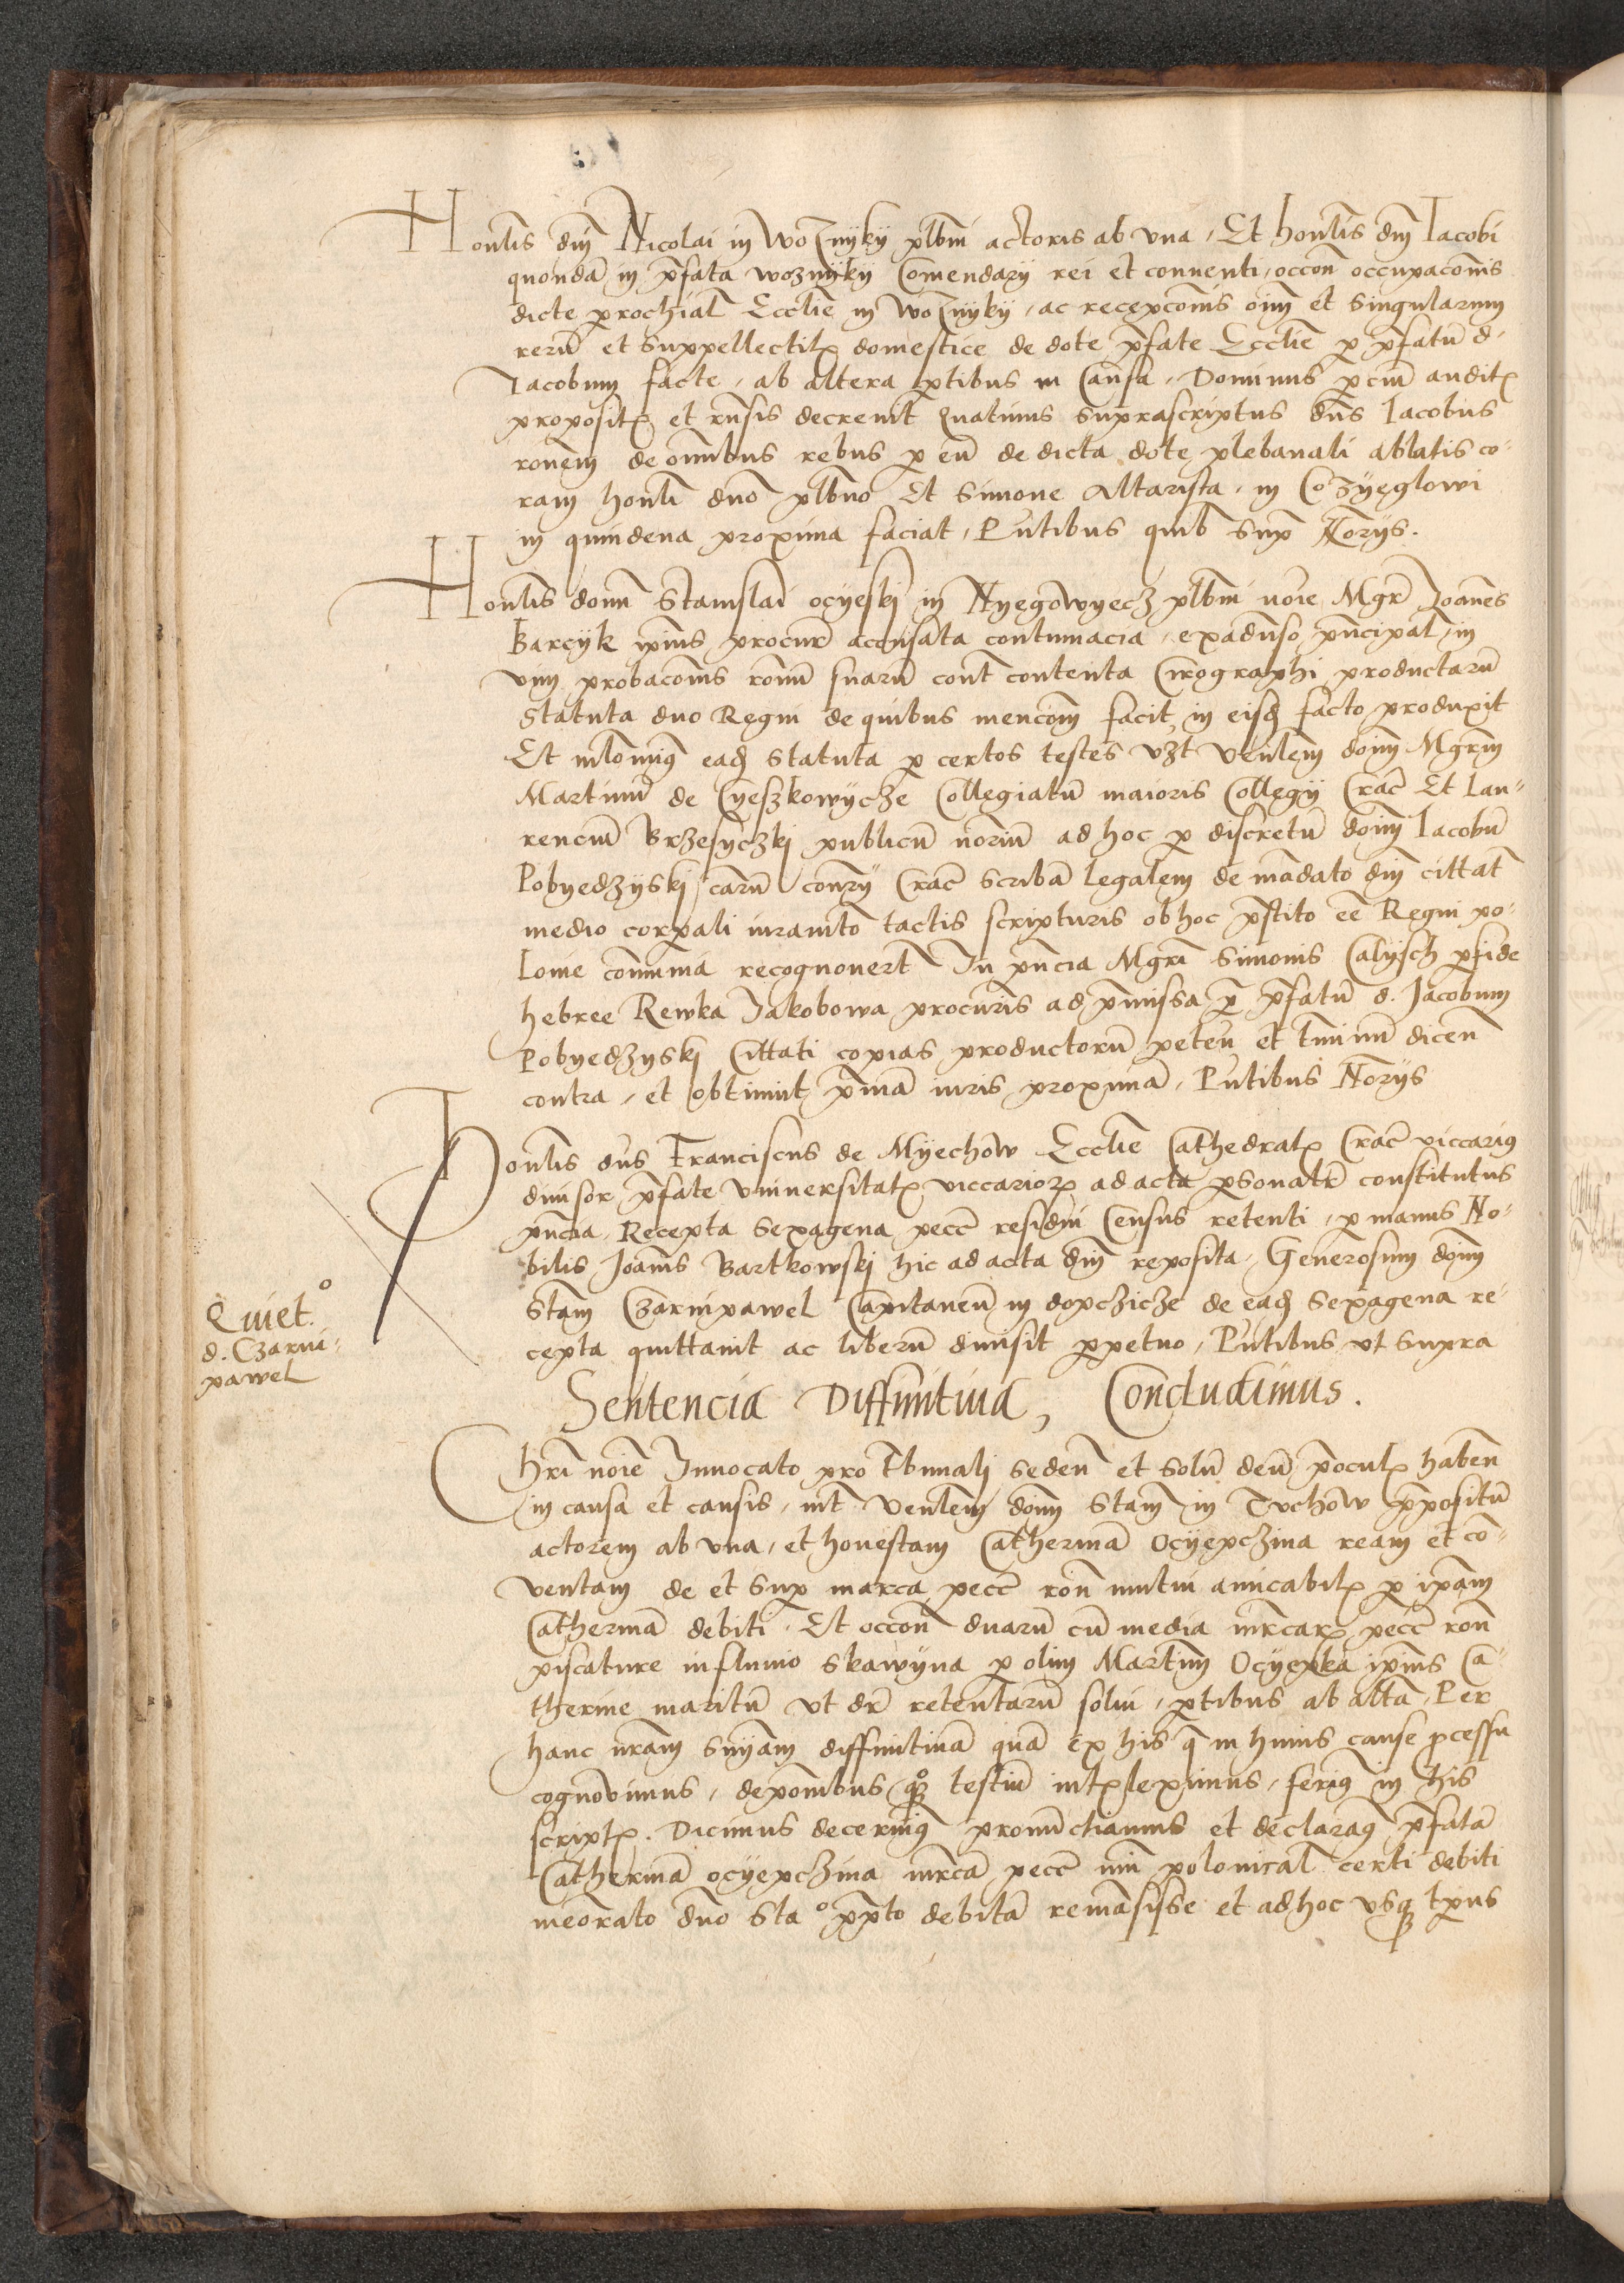 Honlis dni Nicolai in Woznyky plbni actoris ab vna, Et honlis dni Iacobi
quonda in pfata woznyky Comendary rei et conuenti, occon occupaconis
dicte prochial Ecclie in Woznyky, ac recepconis oim et singularum
reru et suppellectil domestice de dote pfate Ecclie p pfatu d.
Iacobum facte, ab altera ptibus in Causa, Dominus pciu audit
proposit et rnsis decreuit Quatinus suprascriptus dns Iacobus
ronem de omnibus rebus p eu de dicta dote plebanali ablatis co-
ram honli dno plbno Et Simone Altarista in Cozyeglowi
in quindena proxima faciat, Pntibus quib supr Norys.
Honlis domi Stanislai ocyeski in Nyegowyecz plbni noie Mgr Joanes
Barcyk ipius procur accusata contumacia, ex aduso principal, in
vim probaconis ronum suaru cont contenta Cirographi productaru
Statuta duo Regni de quibus mencom facit in eisd facto produxit
Et nlominus ead statuta p certos testes vzt venlem doim Mgrm
Martinu de Cyeszkowycze Collegiatu maioris Collegy Crac Et Lau-
renciu Brzesyczki publicu noriu ad hoc p discretu doim Iacobu
Pobyedzyski caru conry Crac scriba legalem de madato dni cittat
medio corpali iuramto tactis scripturis ob hoc pstito ee Regni po-
lonie comunia recognouert In pncia Mgri Simonis Calysch pfide
hebree Rewka Jakobowa procuris ad pmissa p pfatu d. Jacobum
Pobyedzyski Cittati copias productoru peten et tminu dicen
contra, et obtinuit pma iuris proxima, Pntibus Norys
Honlis dns Franciscus de Myechow Ecclie Cathedral Crac viccarius
diuisor pfate vniuersitat viccarior ad acta psonatr constitutus
pncia, Recepta sexagena pecc residui Census retenti, p manus No-
bilis Joanis Bartkowski hic ad acta dni reposita, Generosum doim
Stam Czarnipawel Capitaneu in dopczicze de ead sexagena re-
cepta quittauit ac liberu dimisit ppetuo, Pntibus vt supra
Quiet.o
d. Czarni-
pawel
Sentencia Diffinitiua, Concludimus.
Chri noie Inuocato pro tbunali seden et solu deu p ocul haben
in causa et causis, int venlem doim Stam in Tuchow ppositu
actorem ab vna, et honestam Catherina Ocyepczina ream et co-
uentam de et supr marca pecc ron mutui amicabil p ipam
Catherina debiti, Et occon duaru cu media mrcar pecc ron
piscature in fluuio Skawyna p olim Martinu Ocyepka ipius Ca-
therine maritu vt dr retentaru solui, ptibus ab altra, Per
hanc nram snyam diffinitiua qua ex his q in huius cause pcessu
cognouimus, deponibus q testiu intelleximus, ferim in his
script. Dicimus decernim pronunctiamus et declaram pfata
Catherina ocyepczina mrca pecc nu polonical certi debiti
meorato dno Stao ppto debita remasisse et ad hoc vsq tpus